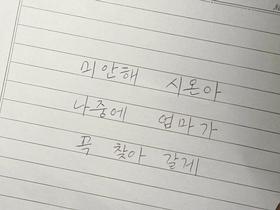 미안해 시온아
나중에 엄마가
꼭 찾아 갈게